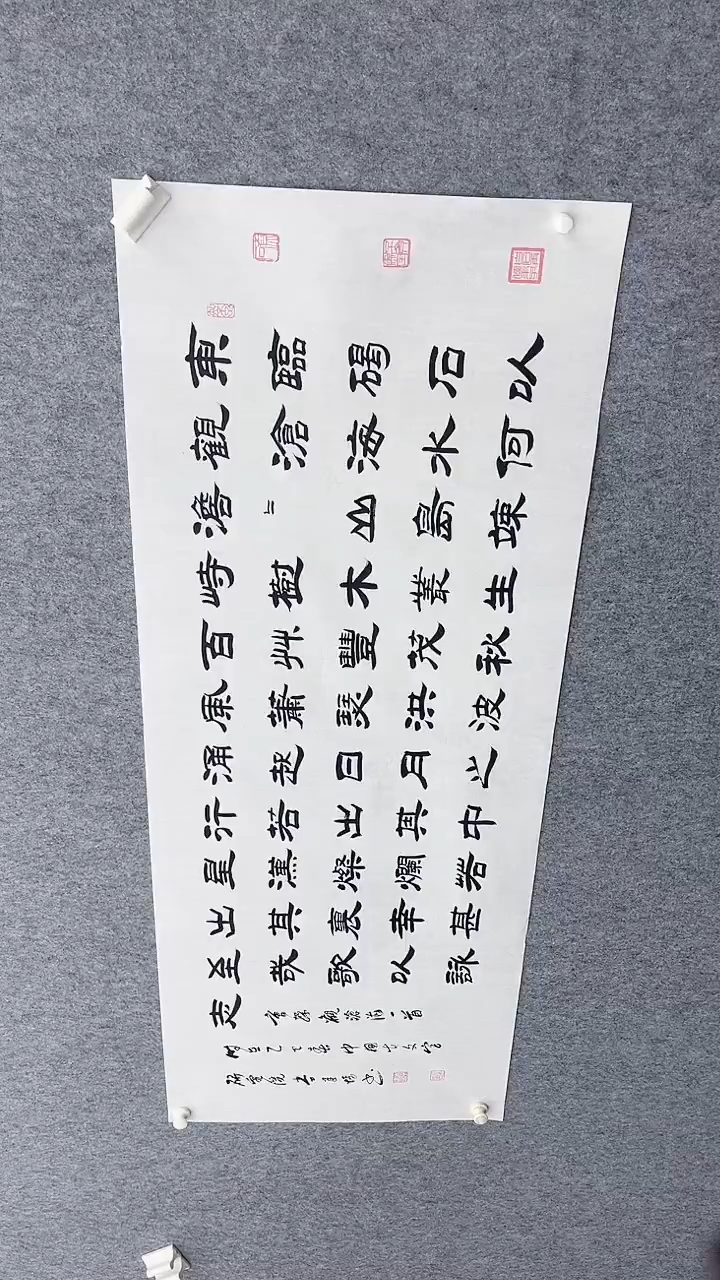 東臨碣石以
觀滄海水何
澹〻山島竦
峙樹木叢生
百艸豐茂秋
風蕭瑟洪波
涌起日月之
行若出其中
星漢燦爛若
出其裏幸甚
至哉歌以詠
志
曹操觀滄海一首
時在乙巳